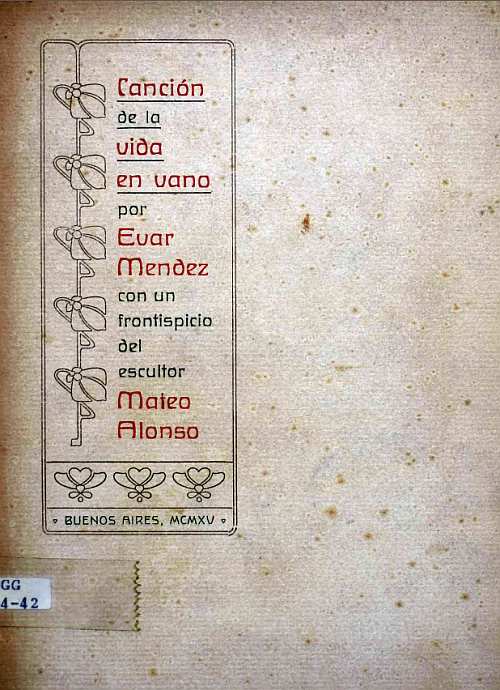 Canción
de la
vida
en vano
por
Evar
Mendez
con un
frontispicio
del
escultor
Mateo
Alonso
BUENOS AIRES, MCMXV
GG
4-42